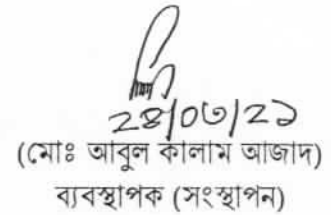 ২৪/০৩/২১
(মোঃ আবুল কালাম আজাদ)
ব্যবস্থাপক (সংস্থাপন)